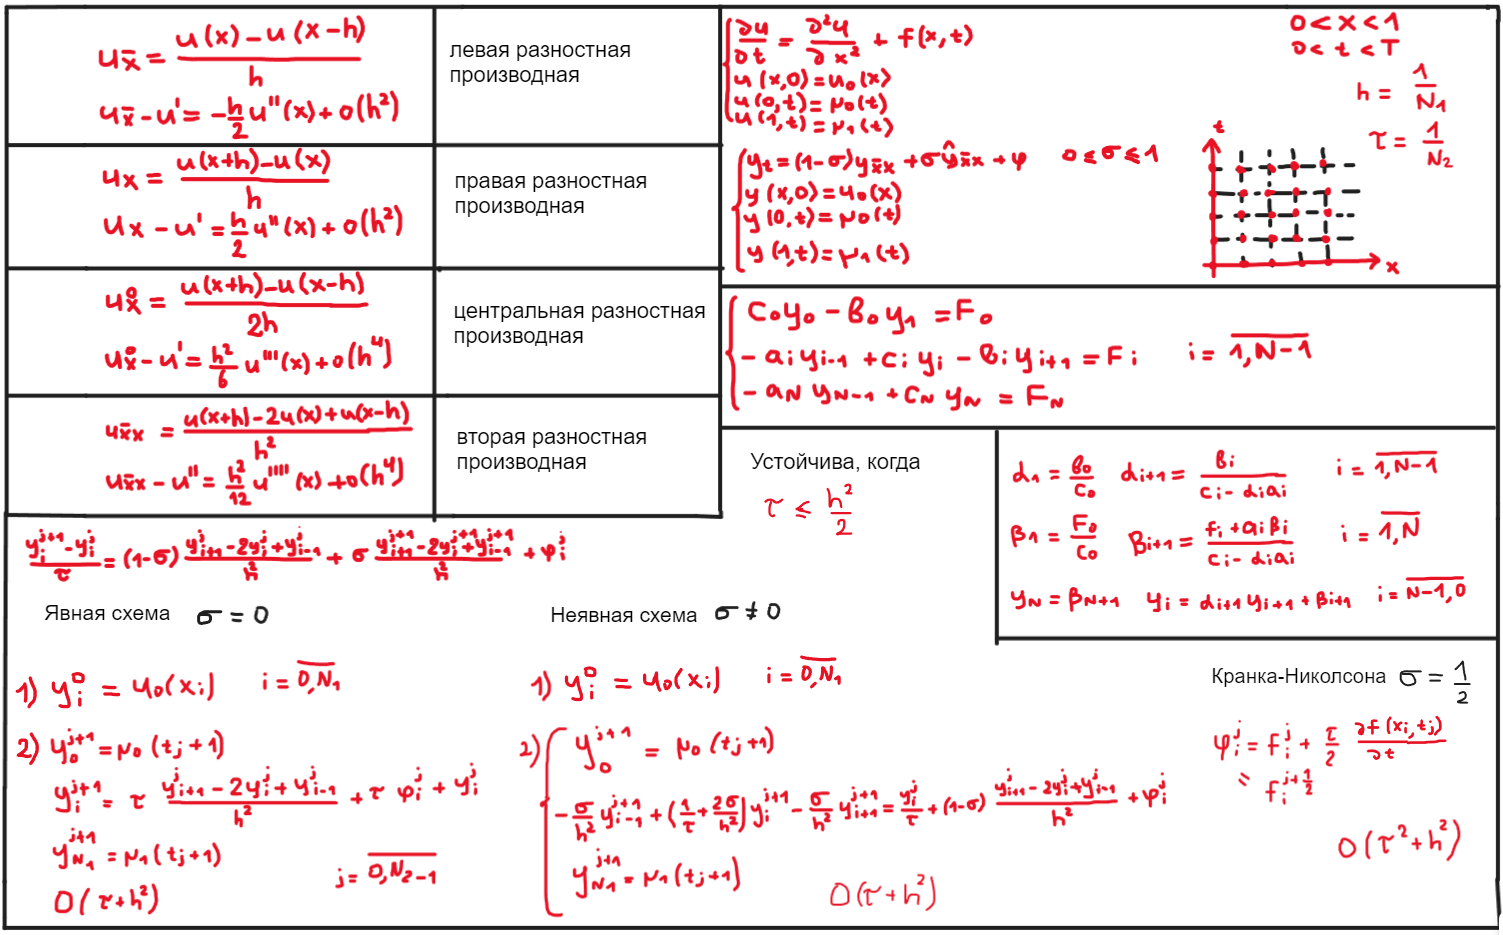 u_x̄ = (u(x) - u(x-h))/h
u_x̄ - u' = -h/2 u''(x) + o(h²)
левая разностная
производная
u_x = (u(x+h) - u(x))/h
u_x - u' = h/2 u''(x) + o(h²)
правая разностная
производная
u_x̊ = (u(x+h) - u(x-h))/2h
u_x̊ - u' = h²/6 u'''(x) + o(h⁴)
центральная разностная
производная
u_x̄x = (u(x+h) - 2u(x) + u(x-h))/h²
u_x̄x - u'' = h²/12 u''''(x) + o(h⁴)
вторая разностная
производная
∂u/∂t = ∂²u/∂x² + f(x,t)
u(x,0) = u₀(x)
u(0,t) = μ₀(t)
u(1,t) = μ₁(t)
0 < x < 1
0 < t < T
h = 1/N₁
τ = 1/N₂
y_t = (1-σ)y_x̄x + σŷ_x̄x + φ   0 ≤ σ ≤ 1
y(x,0) = u₀(x)
y(0,t) = μ₀(t)
y(1,t) = μ₁(t)
t
x
c₀y₀ - b₀y₁ = F₀
- a_i y_{i-1} + c_i y_i - b_i y_{i+1} = F_i   i = 1,N-1
- a_N y_{N-1} + c_N y_N = F_N
Устойчива, когда
τ ≤ h²/2
α₁ = b₀/c₀   α_{i+1} = b_i/(c_i - α_i a_i)   i = 1,N-1
β₁ = F₀/c₀   β_{i+1} = (f_i + a_i β_i)/(c_i - α_i a_i)   i = 1,N
y_N = β_{N+1}   y_i = α_{i+1} y_{i+1} + β_{i+1}   i = N-1,0
(y_i^{j+1} - y_i^j)/τ = (1-σ) (y_{i+1}^j - 2y_i^j + y_{i-1}^j)/h² + σ (y_{i+1}^{j+1} - 2y_i^{j+1} + y_{i-1}^{j+1})/h² + φ_i^j
Явная схема   σ = 0
1) y_i^0 = u₀(x_i)   i = 0,N₁
2) y_0^{j+1} = μ₀(t_j+1)
y_i^{j+1} = τ (y_{i+1}^j - 2y_i^j + y_{i-1}^j)/h² + τ φ_i^j + y_i^j
y_{N₁}^{j+1} = μ₁(t_j+1)   j = 0,N₂-1
O(τ+h²)
Неявная схема   σ ≠ 0
1) y_i^0 = u₀(x_i)   i = 0,N₁
2) y_0^{j+1} = μ₀(t_j+1)
-σ/h² y_{i-1}^{j+1} + (1/τ + 2σ/h²) y_i^{j+1} - σ/h² y_{i+1}^{j+1} = y_i^j/τ + (1-σ) (y_{i+1}^j - 2y_i^j + y_{i-1}^j)/h² + φ_i^j
y_{N₁}^{j+1} = μ₁(t_j+1)
O(τ+h²)
Кранка-Николсона   σ = 1/2
φ_i^j = f_i^j + τ/2 ∂f(x_i,t_j)/∂t
= f_i^{j+1/2}
O(τ²+h²)